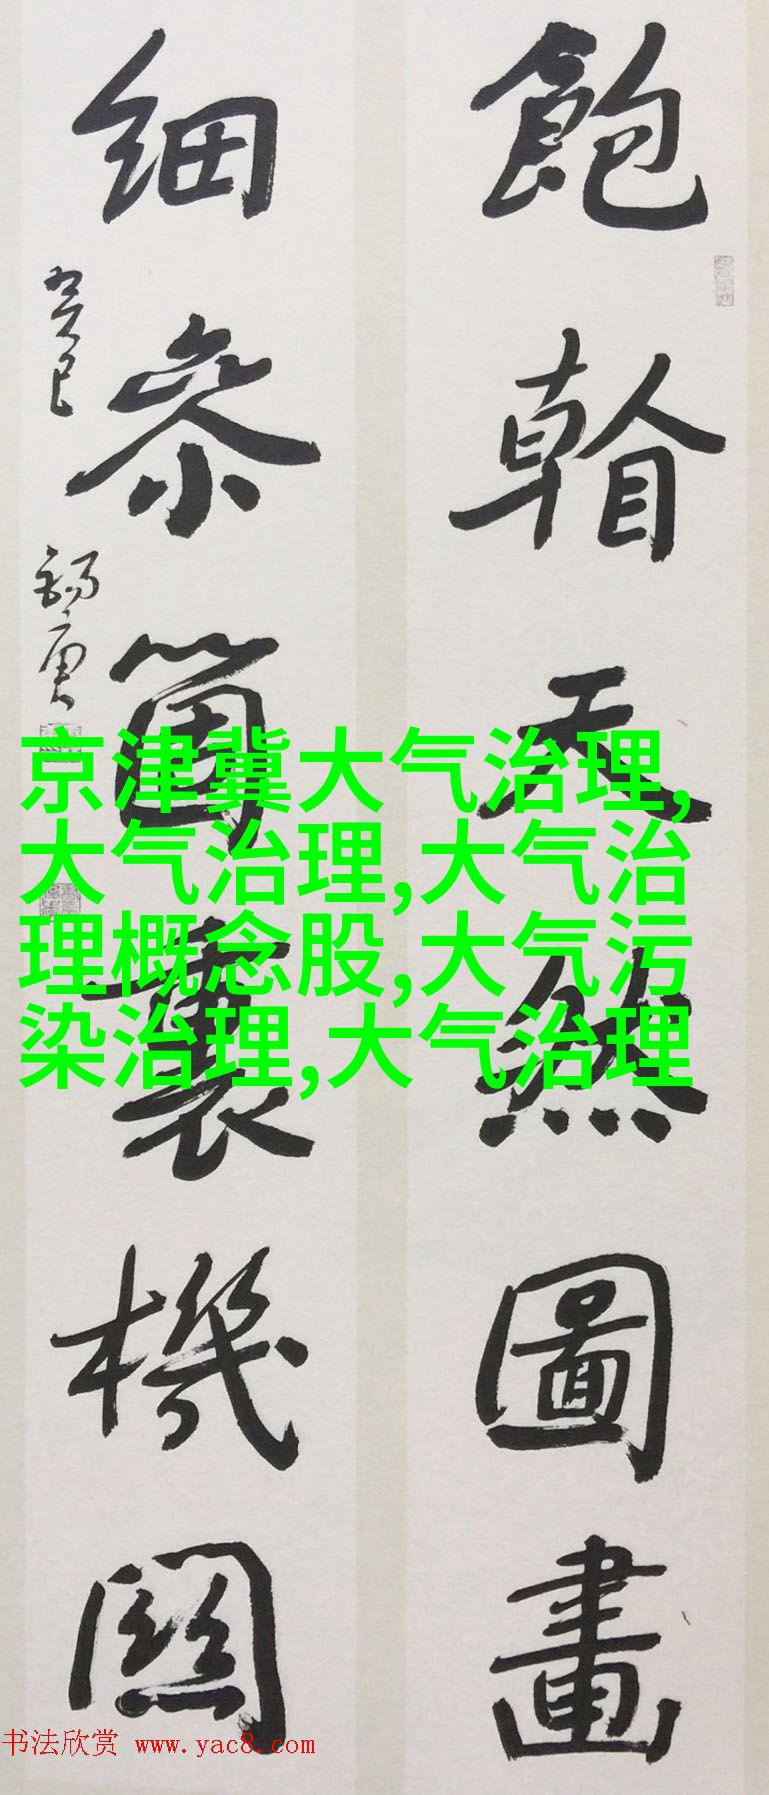 飽看天然圖畫
細參個裏機關
癸巳
錫庚
京津冀大气治理,
大气治理,大气治
理概念股,大气污
染治理,大气治理
书法欣赏 www.yac8.com